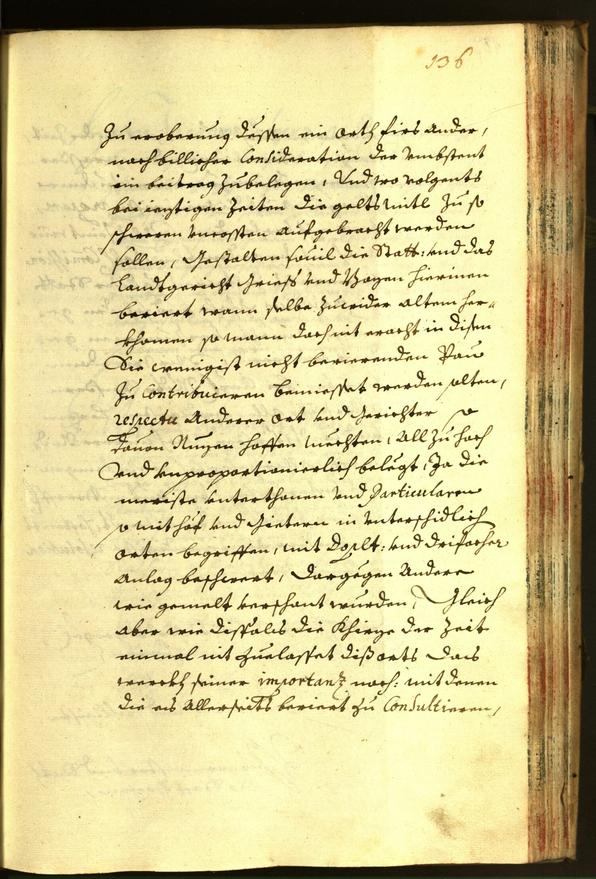 136
Zu eroberung dessen ein Orth fürs Ander,
nach billicher Consideration der Umbstent
ein beitrag Zubelegen, Und wo volgents
bei ieztigen Zeiten die gelts mitl Zu so
schweren Uncossten aufgebracht werden
sollen, Gestalten souil die Statt: und das
Landtgericht Griess und Bozen hierinen
beriert wann selbe Zuwider altem her¬
khomen so mann doch nit eracht in disen
Sie wenigist nicht berierenden Pau
Zu Contribuieren bemiessat werden solten,
respectu Anderer Ort und Gerichter so
dauon Nuzen hoffen mechten, All Zu hoch
Und unproportionierlich belegt, Ja die
meriste unterthonen und Particularen
so mit höf und Gietern in unterschidlich
orten begriffen, mit Doplt: und drifacher
Anlag beschwert, dargegen Andere
wie gemelt verschont wurden, Gleich
aber wie dissfalls die Khirze der Zeit
einmal nit Zuelasset diß orts das
werckh seiner importanz nach: mit denen
die es Allerseits beriert zu Consultieren,